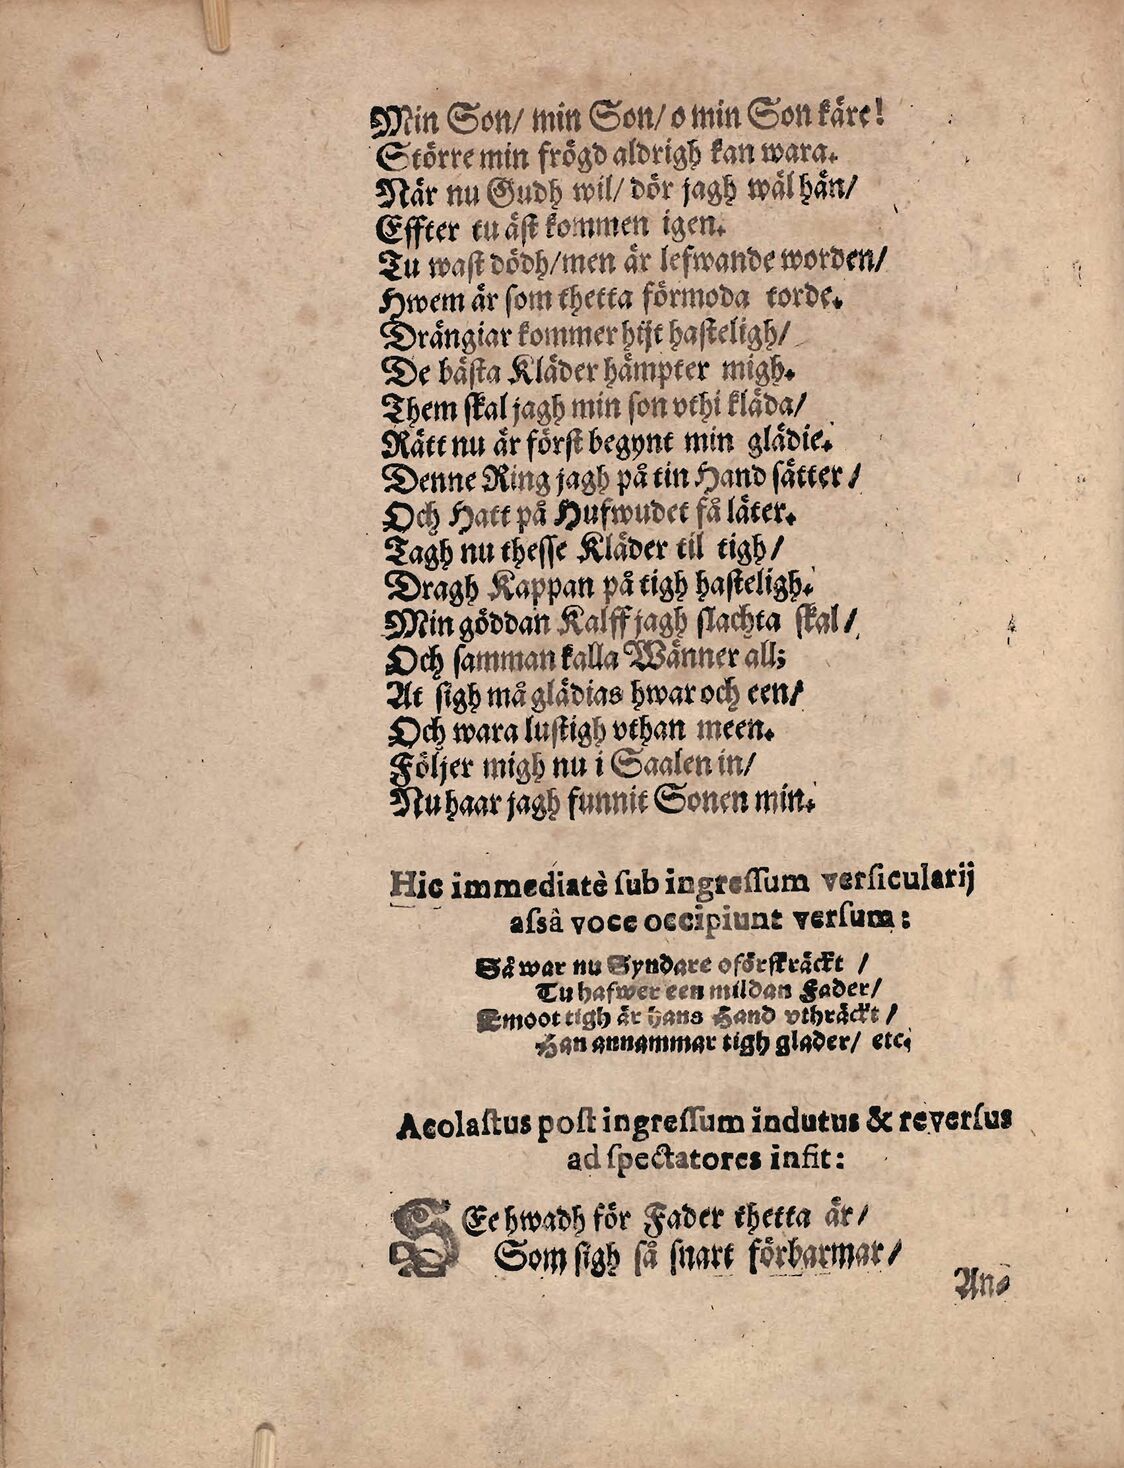 Min Son/ min Son/ o min Son käre!
Större min frögd aldrigh kan wara.
När nu Gudh wil/ dör jagh wäl hän/
Effter tu äst kommen igen.
Tu wast dödh/ men är lefwande worden/
Hwem är som thetta förmoda torde.
Drängiar kommer hijt hasteligh/
De bästa Kläder hämpter migh.
Them skal jagh min son vthi kläda/
Rätt nu är först begynt min glädie.
Denne Ring jagh på tin Hand sätter/
Och Hatt på Hufwudet få läter.
Tagh nu thesse Kläder til tigh/
Dragh Kappan på tigh hasteligh.
Min göddan Kalff jagh slachta skal/
Och samman kalla Wänner all;
At sigh må glädias hwar och een/
Och wara lustigh vthan meen.
Följer migh nu i Saalen in/
Nu haar jagh funnit Sonen min.
Hic immediatè sub ingressum versicularij
assâ voce occipiunt versum:
Så war nu Syndare oförskräckt /
Tu hafwer een mildan Fader/
Emoot tigh är hans Hand vthräckt /
Han annammar tigh glader/ etc.
Acolastus post ingressum indutus & reversus
ad spectatores infit:
SEe hwadh för Fader thetta är/
Som sigh så snart förbarmar/
An-